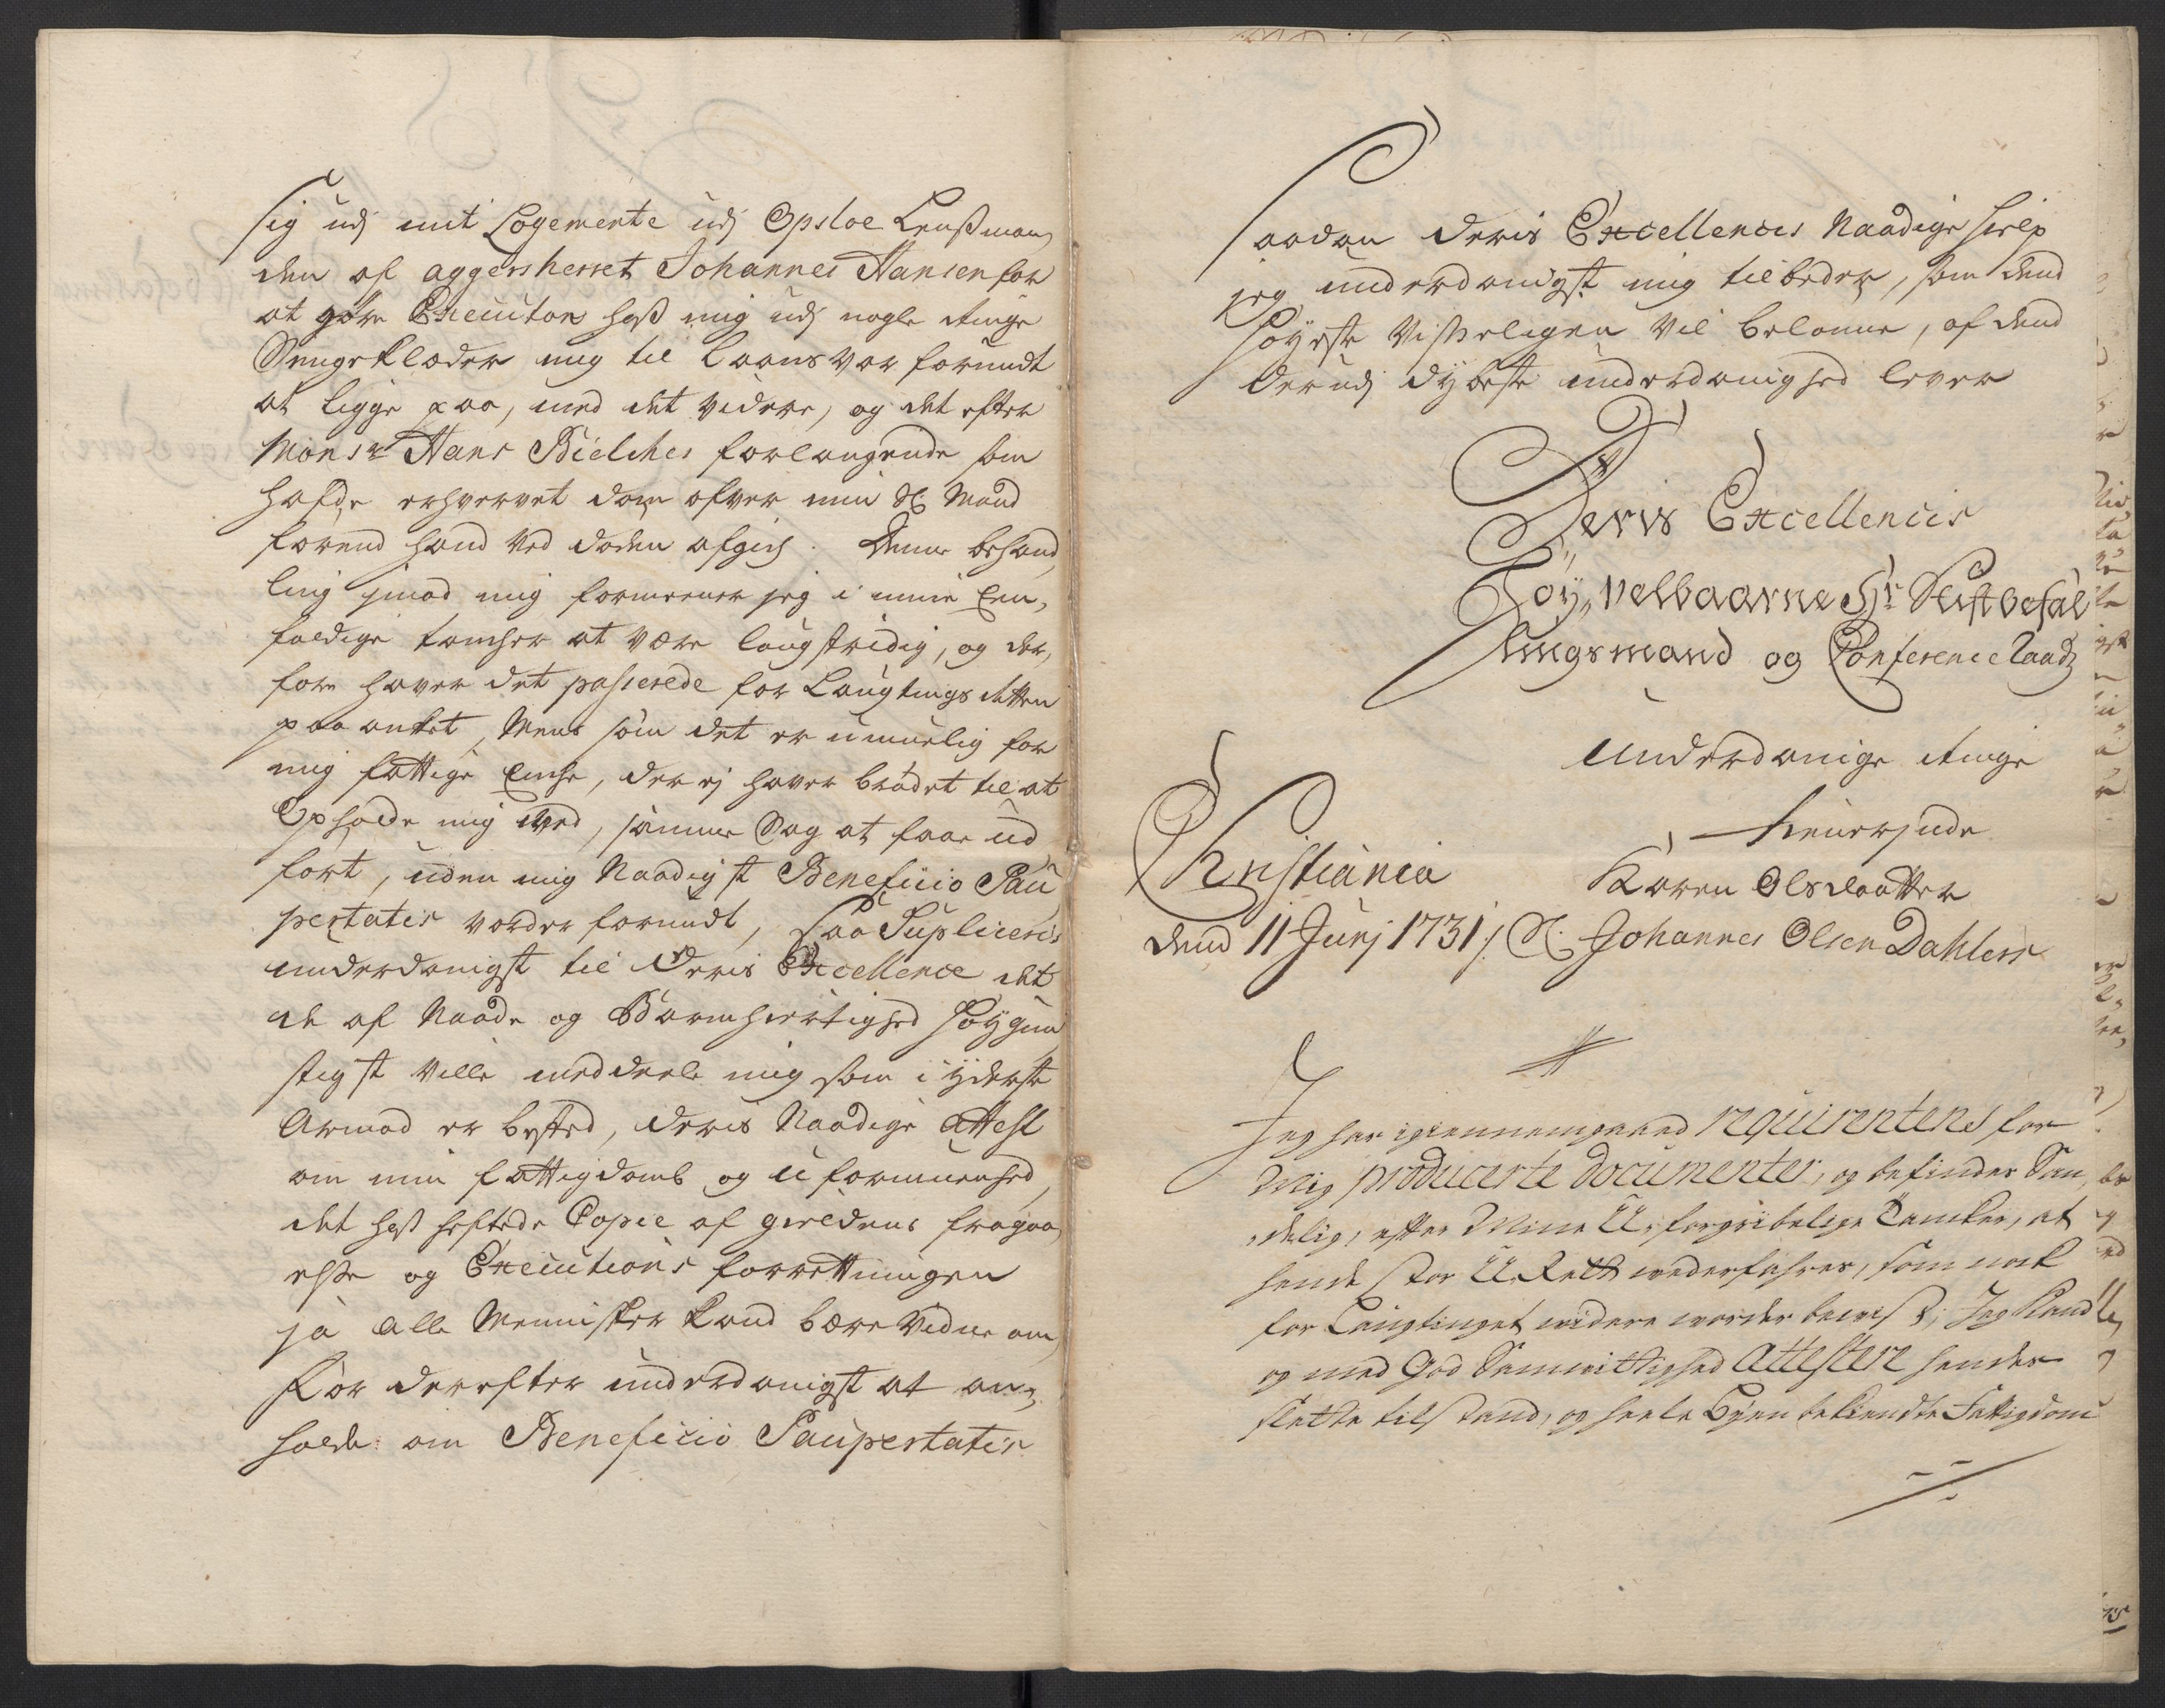 sig udj mit Logemente udj Opsloe Lensman,
den af aggersherret Johannes Hansen for
at göre Execution hoß mig udj nogle ringe
Sengeklæder mig til Laans var forundt
at ligge paa, med det videre, og det efter
Monsr Hans Bielches forlangende som
hafde erhvervet dom ofver min Sl. Mand
forend hand ved döden afgich. Denne behand,
ling imod mig formeener jeg i mine Een,
foldige tancher at være laugstridig, og der,
fore haver det passerede for Laugtings Retten
paa anket, Mens som det er umuelig for
mig fattige Enche, der ej haver brödet til at
Opholde mig Ved, samme Sag at faae ud
fört, uden mig Naadigst Beneficio Pau
pertatis vorder forundt, Saa Supliceris
underdanigst til Deris Excellence det
de af Naade og Barmhiertighed höygun
stigst ville meddeele mig som i yderste
Armod er bested, Deris Naadige Attest
om min fattigdomb og uformuenhed,
det hoß heftede Copie af gieldens fragaa,
else og Executions forretningen
ja alle Mennisker kand bære Vidne om,
for derefter underdanigst at an,
holde om Beneficio Paupertatis
Saadan Deris Excellences Naadige hielp
jeg underdanigst mig tilbeder, som dend
höyeste Visseligen vil belönne, af dend
der udj dybeste underdanighed lever
Deris Excellencis
Höy, velbaarne Hr. Stiftbefal
lingsmand og Conference Raads
underdanige ringe
tienerinde
Karen Olsdaatter
Christiania
dend 11 Junj 1731 /. Sl. Johannes Olsen Dahlers
Jeg har igiennemgaaed requirentens for
Mig producerte documenter, og befinder Sun,
delig, efter Mine U-forgribelige Tancker, at
hende stor U-Rett wederfahres, som nok
for Laugtinget widere worder bewist, Jeg kand
og med God Samwittighed attestere hendes
slette tilstand, og heele Byen bekiendte Fattigdom